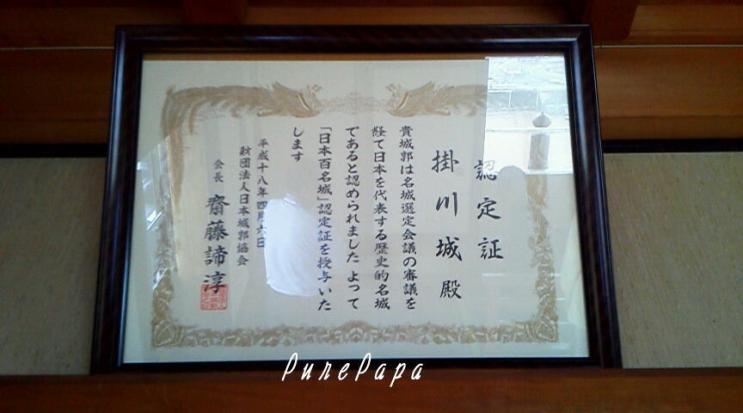 認定証
掛川城殿
貴城郭は名城選定会議の審議を
経て日本を代表する歴史的名城
であると認められました よって
「日本百名城」認定証を授与いた
します
平成十八年四月六日
財団法人日本城郭協会
会長 齋藤諦淳
PurePapa